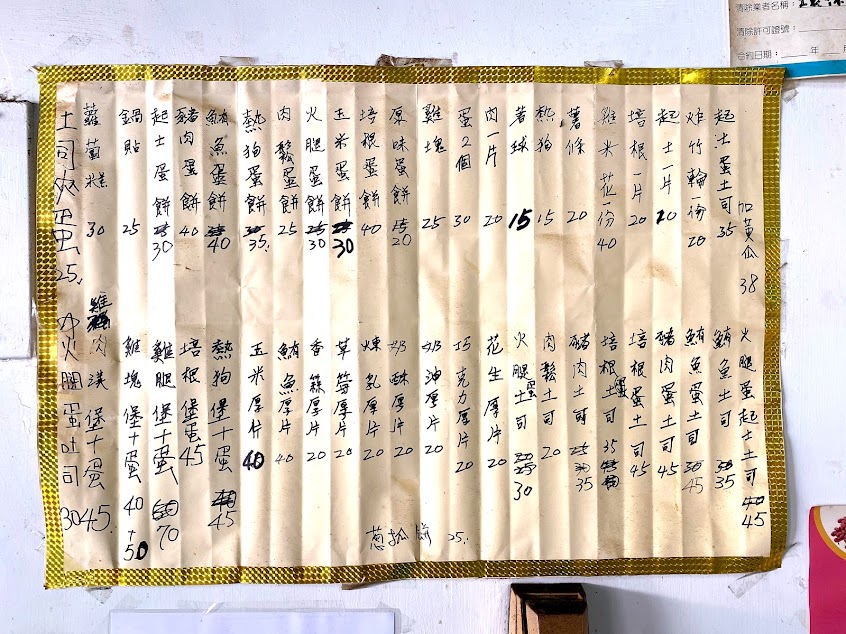 清除業者名稱：
清除許可證號：
合約日期： 年 月
加黃瓜 38
起士蛋土司 35
炸竹輪一份 20
起士一片 20
培根一片 20
雞米花一份 40
薯條 20
熱狗 15
薯球 15
肉一片 20
蛋2個 30
雞塊 25
原味蛋餅 15 20
培根蛋餅 40
玉米蛋餅 25 30
火腿蛋餅 25 30
肉鬆蛋餅 25
熱狗蛋餅 30 35
鮪魚蛋餅 35 40
豬肉蛋餅 40
起士蛋餅 25 30
鍋貼 25
蘿蔔糕 30
土司夾蛋 25
火腿蛋起士土司 40 45
鮪魚土司 30 35
鮪魚蛋土司 30 45
豬肉蛋土司 45
培根蛋土司 45
培根蛋土司 35
豬肉土司 25 30 35
肉鬆土司 20
火腿蛋土司 20 25 30
花生厚片 20
巧克力厚片 20
奶油厚片 20
奶酥厚片 20
煉乳厚片 20
草莓厚片 20
香蒜厚片 20
鮪魚厚片 40
玉米厚片 40
熱狗堡十蛋 40 45
培根堡蛋 45
雞腿堡十蛋 60 70
雞塊堡十蛋 40 + 50
雞肉漢堡十蛋 45
火腿蛋吐司 30
蔥抓餅 25